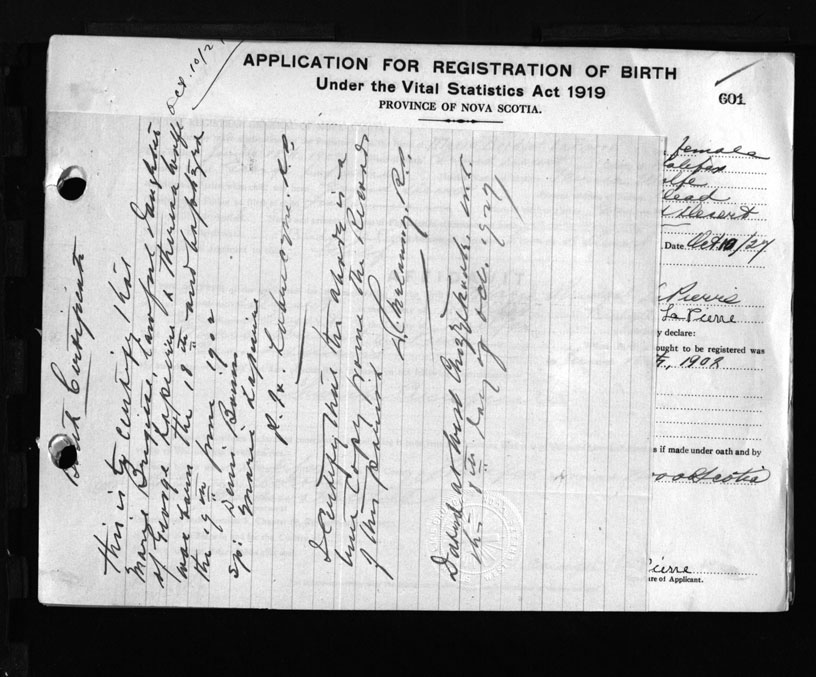 APPLICATION FOR REGISTRATION OF BIRTH
Under the Vital Statistics Act 1919
PROVINCE OF NOVA SCOTIA.
601
Oct. 10/27
Birth Certificate
This is to certify that
Marie Brigitte lawful daughter
of George Lapierre & Theresa Wolfe
was born the 18th and baptized
the 19th June 1902
Sps: Denis
Marie Lapierre
I certify that the above is a
true copy from the Records
of this parish
Dated at West Chezzetcook. Oct.
this 8th day of Oct. 1927
female
Halifax
Wolfe
Head
Desert
Date. Oct. 10/27
Pierre
La Pierre
y declare:
ought to be registered was
1902
s if made under oath and by
Scotia
Pierre
ure of Applicant.